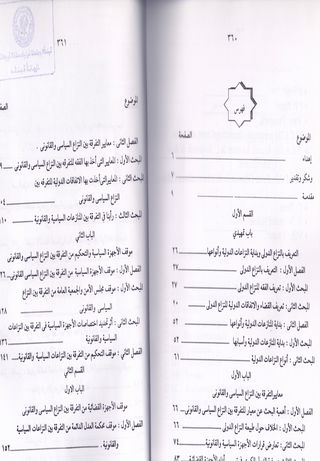 ٣٦٠
فهرس
الموضوع الصفحة
إهداء ٦
وشكر وتقدير ٧
مقدمة ٩
القسم الأول
باب تمهيدي
التعريف بالنزاع الدولي وبداية النزاعات الدولية وأنواعها ٢٦
الفصل الأول : التعريف بالنزاع الدولي ٢٧
المبحث الأول : تعريف الفقه للنزاع الدولي ٢٧
المبحث الثاني : تعريف القضاء والاتفاقات الدولية للنزاع الدولي
الفصل الثاني : بداية المنازعات الدولية وأنواعها ٥٢
المبحث الأول : بداية المنازعات الدولية وأسبابها ٥٢
المبحث الثاني : أنواع النزاعات الدولية ٦١
الباب الأول
معايير التفرقة بين النزاع السياسي والقانوني
الفصل الأول : أهمية البحث عن معيار للتفرقة بين النزاع السياسي والقانوني ٦٦
المبحث الأول : الخلاف حول طبيعة النزاع الدولي ٦٦
المبحث الثاني : تعارض قرارات الأجهزة السياسية والقانونية ٧٤
٣٦١
الموضوع الصفحة
الفصل الثاني : معايير التفرقة بين النزاع السياسي والقانوني
المبحث الأول : المعايير التي أخذ بها الفقه للتفرقة بين النزاع السياسي والقانوني
المبحث الثاني : المعايير التي أخذت بها الاتفاقات الدولية للتفرقة بين
النزاع السياسي والقانوني
المبحث الثالث : رأينا في التفرقة بين المنازعات السياسية والقانونية ١١٠
الباب الثاني
موقف الأجهزة السياسية والتحكيم من التفرقة بين النزاع السياسي والقانوني
الفصل الأول : موقف الأجهزة السياسية من التفرقة بين النزاع السياسي والقانوني
المبحث الأول : موقف مجلس الأمن والجمعية العامة من التفرقة بين النزاع
السياسي والقانوني
المبحث الثاني : أثر تحديد اختصاصات الأجهزة السياسية في التفرقة بين النزاعات
السياسية والقانونية
الفصل الثاني : موقف التحكيم من التفرقة بين النزاعات السياسية والقانونية ١٤١
القسم الثاني
الباب الأول
موقف الأجهزة القضائية من التفرقة بين النزاع السياسي والقانوني
الفصل الأول : موقف محكمة العدل الدائمة من التفرقة بين النزاعات السياسية
والقانونية . ١٥٢